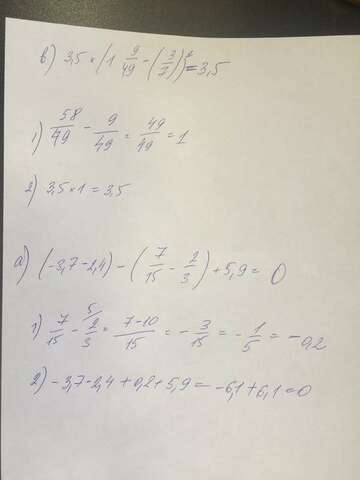 в) 3,5 × (1 9/49 - (3/7)²) = 3,5
1) 58/49 - 9/49 = 49/49 = 1
2) 3,5 × 1 = 3,5
а) (-3,7 - 2,4) - (7/15 - 2/3) + 5,9 = 0
1) 7/15 - 5/ 2/3 = 7-10/15 = - 3/15 = - 1/5 = -0,2
2) -3,7 - 2,4 + 0,2 + 5,9 = -6,1 + 6,1 = 0